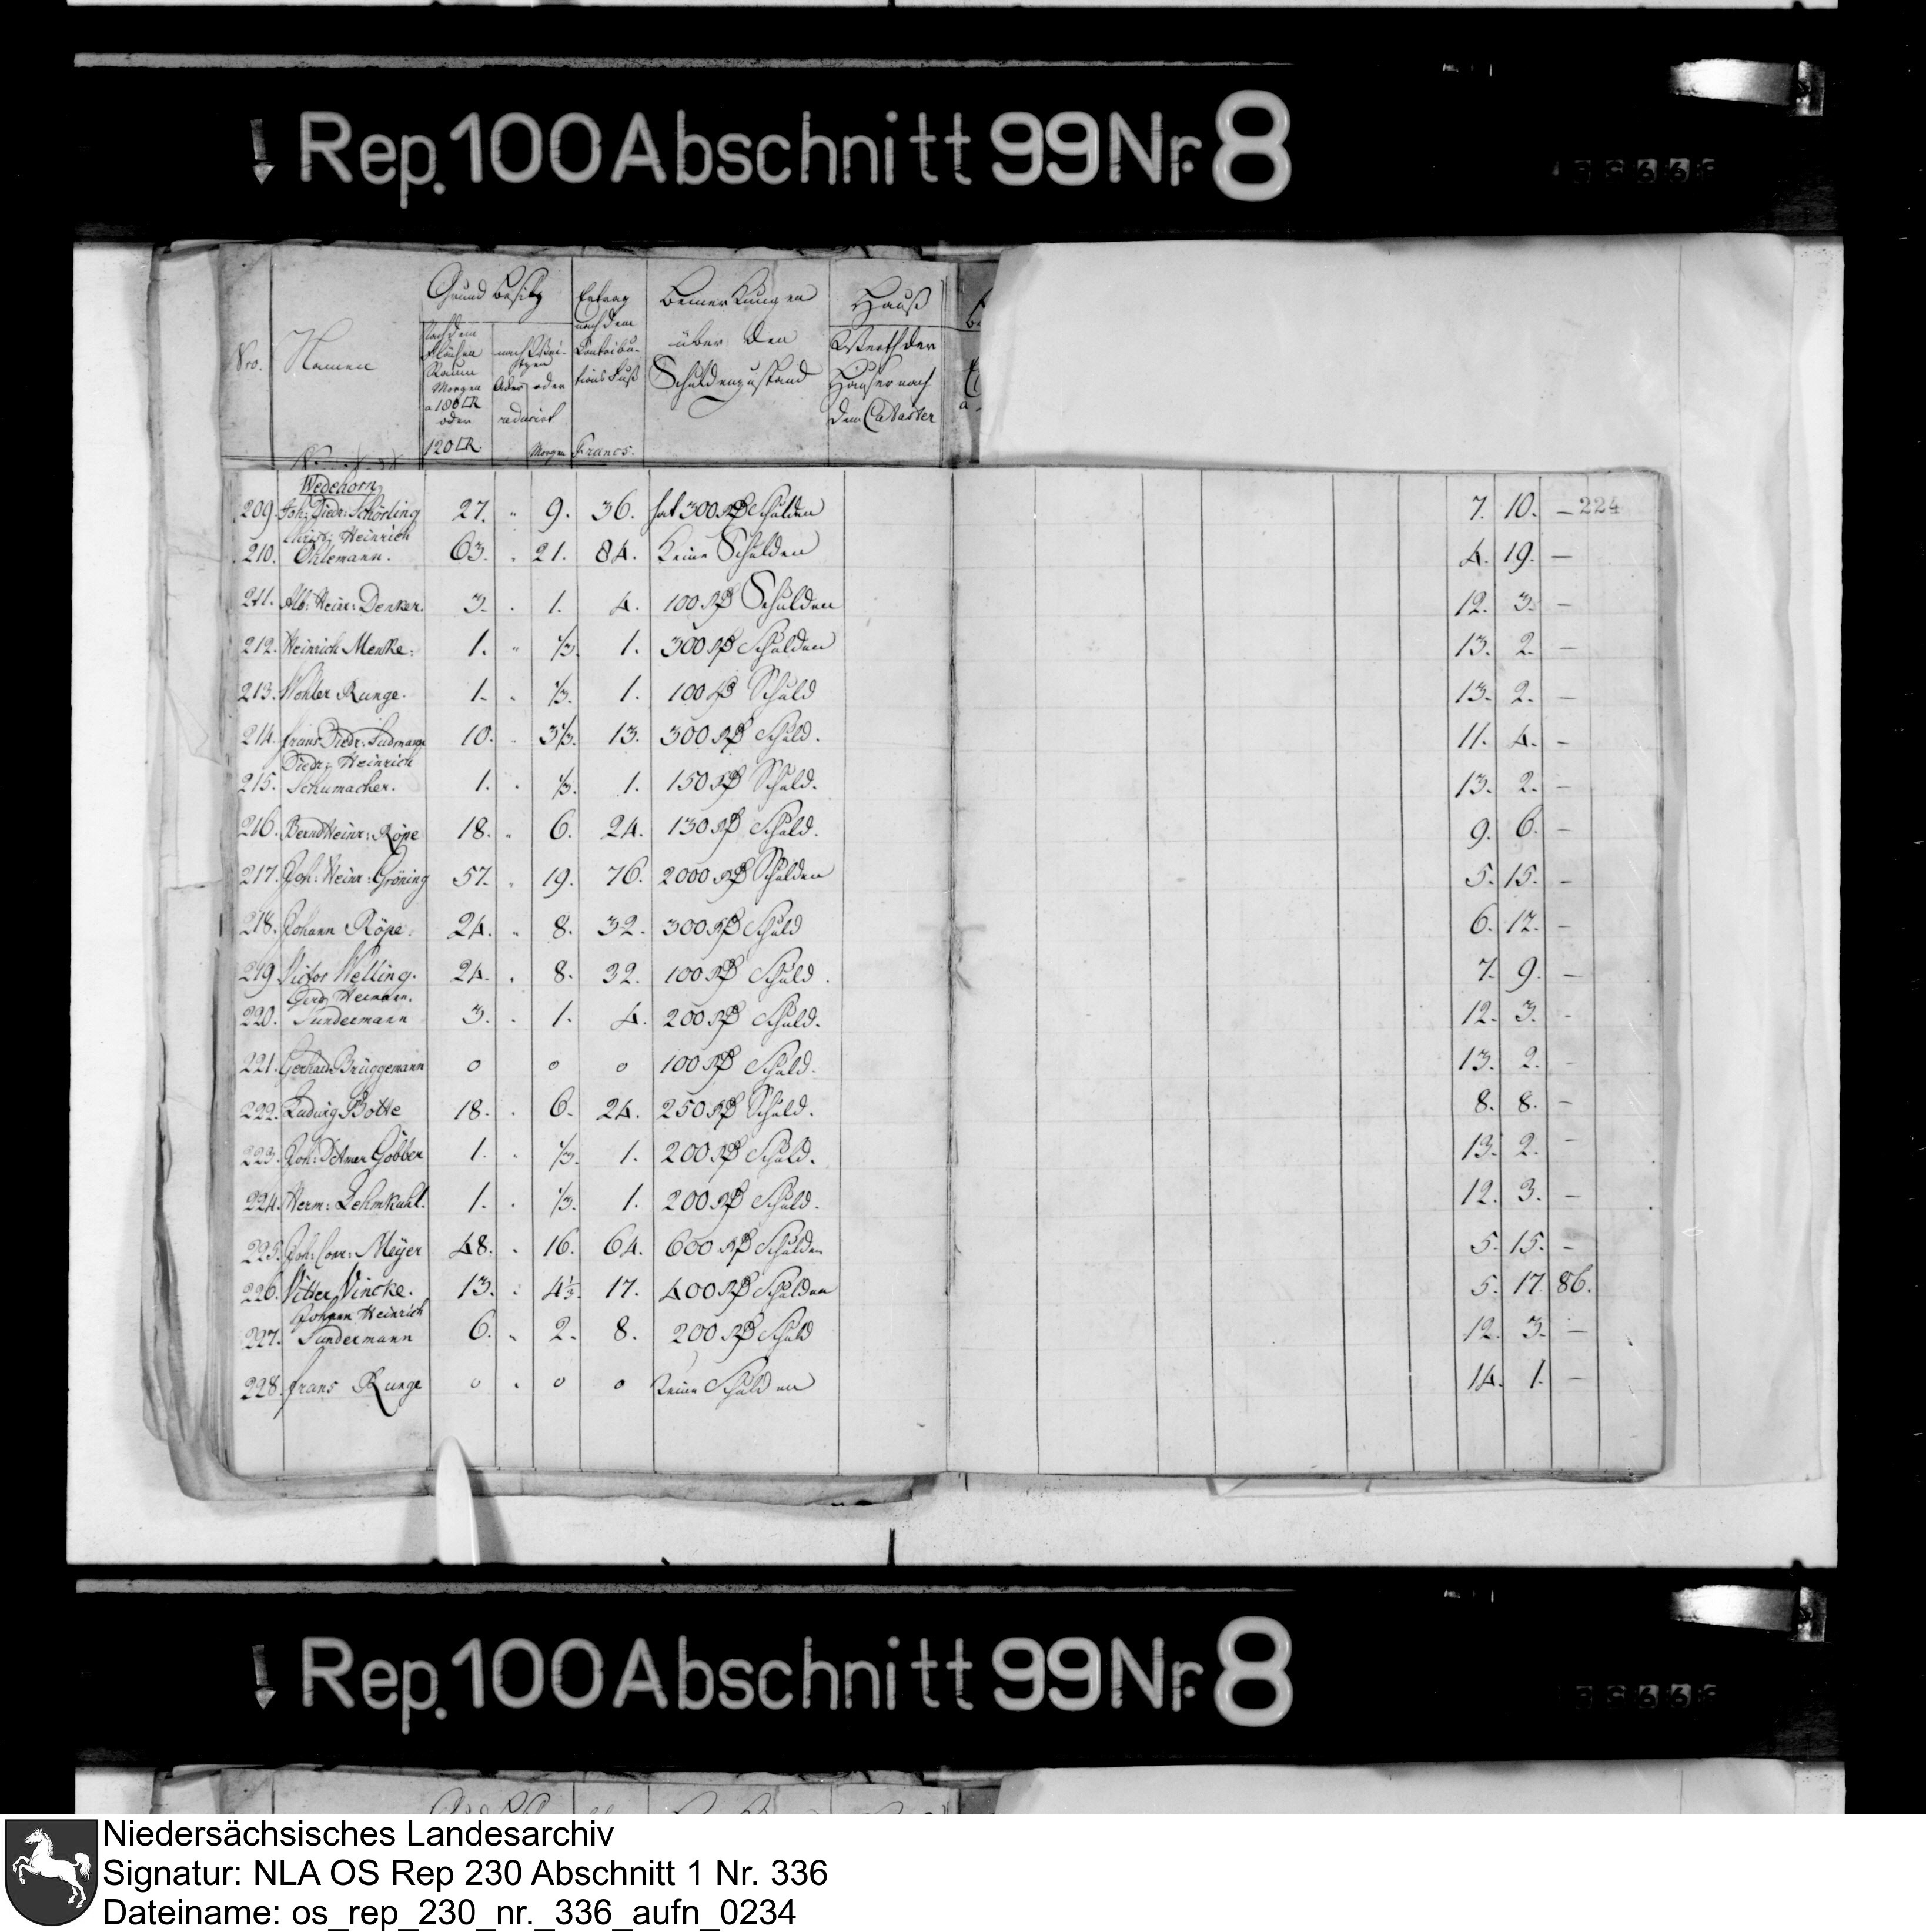 Rep. 100 Abschnitt 99 Nr. 8
Nro. Namen
Grund Besitz
Nach dem Flächen Raum Morgen a 180 □R oder 120 □R.
oder reducirt Morgen
Ertrag nach dem Contribu-
tions Fuß
Francs.
Bemerkungen
über den
Schuldenzustand
Hauß
Werth der
Häuser nach
dem Cataster
Wedehorn
209. Joh: Diedr: Schörling 27. " 9. 36. hat 300 Rß Schulden 7. 10. — 224
Heinrich
210. Ohlemann. 63. . 21. 84. Keine Schulden 4. 19. —
211. Alb: Heinr: Denker. 3. . 1. 4. 100 Rß Schulden 12. 3. —
212. Heinrich Menke. 1. " 1/3. 1. 300 Rß Schulden 13. 2. —
213. Wohler Runge. 1. . 1/3. 1. 100 Rß Schuld 13. 2. —
214. Frans Diedr: 10. . 3 1/3. 13. 300 Rß Schuld. 11. 4. —
Diedr: Heinrich
215. Schumacher. 1. . 1/3. 1. 150 Rß Schuld. 13. 2. —
216. Bernd Heinr: Röpe 18. . 6. 24. 130 Rß Schuld. 9. 6. —
217. Joh: Heinr: Gröning 57. . 19. 76. 2000 Rß Schulden 5. 15. —
218. Johann Röpe. 24. " 8. 32. 300 Rß Schuld 6. 12. —
219. Victor Welling. 24. . 8. 32. 100 Rß Schuld. 7. 9. —
Gerd Hermann.
220. Sundermann 3. . 1. 4. 200 Rß Schuld. 12. 3. -
221. Gerhard Brüggemann 0 0 0 100 Rß Schuld. 13. 2. -
222. Ludwig Botte 18. . 6. 24. 250 Rß Schuld. 8. 8. —
223. Joh: Ditmer Göbber 1. . 1/3. 1. 200 Rß Schuld. 13. 2. —
224. Herm: Lehmkuhl. 1. . 1/3. 1. 200 Rß Schuld. 12. 3. —
225. Joh: Conr: Meÿer 48. . 16. 64. 600 Rß Schulden 5. 15. —
226. Vincke. 13. . 4 1/3. 17. 400 Rß Schulden 5. 17. 86.
Johann Heinrich
227. Sundermann 6. . 2. 8. 200 Rß Schuld 12. 3. —
228. Frans Runge 0 . 0 0 Keine Schulden 14. 1. —
Rep. 100 Abschnitt 99 Nr. 8
Niedersächsisches Landesarchiv
Signatur: NLA OS Rep 230 Abschnitt 1 Nr. 336
Dateiname: os_rep_230_nr._336_aufn_0234